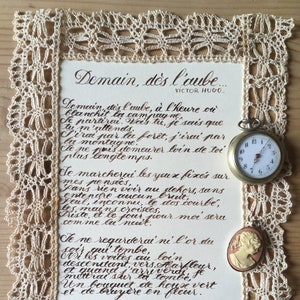 Demain, dès l'aube...
VICTOR HUGO.
Demain, dès l'aube, à l'heure où
blanchit la campagne,
Je partirai. Vois-tu, je sais que
tu m'attends.
J'irai par la forêt, j'irai par
la montagne.
Je ne puis demeurer loin de toi
plus longtemps.
Je marcherai les yeux fixés sur
mes pensées,
Sans rien voir au dehors, sans
entendre aucun bruit,
Seul, inconnu, le dos courbé,
les mains croisées,
Triste, et le jour pour moi sera
comme la nuit.
Je ne regarderai ni l'or du
soir qui tombe,
Ni les voiles au loin
descendant vers Harfleur,
Et quand j'arriverai, je
mettrai sur ta tombe,
Un bouquet de houx vert
et de bruyère en fleur.